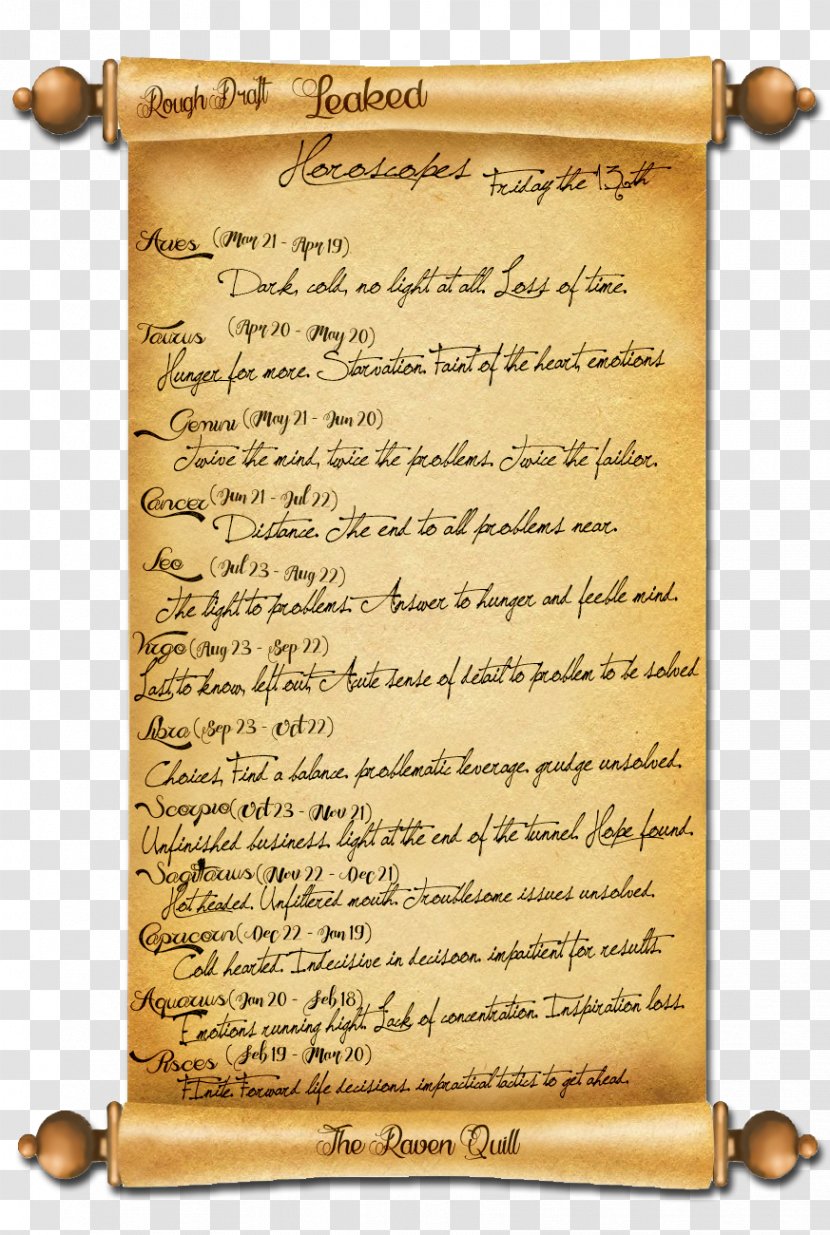 Rough Draft Leaked
Horoscopes Friday the 13th
Aries (Mar 21 - Apr 19)
Dark, cold, no light at all. Loss of time.
Taurus (Apr 20 - May 20)
Hunger for more. Starvation. Faint of the heart, emotions
Gemini (May 21 - Jun 20)
Twive the mind, twice the problems. Twice the failior.
Cancer (Jun 21 - Jul 22)
Distance. The end to all problems near.
Leo (Jul 23 - Aug 22)
The light to problems. Answer to hunger and feeble mind.
Virgo (Aug 23 - Sep 22)
Last to know, left out, Acute sense of detail to problem to be solved
Libra (Sep 23 - Oct 22)
Choices, Find a balance. problematic leverage. grudge unsolved.
Scorpio (Oct 23 - Nov 21)
Unfinished business. light at the end of the tunnel. Hope found.
Sagitarius (Nov 22 - Dec 21)
Hot headed. Unfiltered mouth. Troublesome issues unsolved.
Capricorn (Dec 22 - Jan 19)
Cold hearted. Indecisive in decisoon. impaitient for results.
Aquarius (Jan 20 - Feb 18)
Emotions running hight. Lack of concentration. Inspiration loss.
Pisces (Feb 19 - Mar 20)
Finite. Forward life decisions. impractical tactics to get ahead.
The Raven Quill